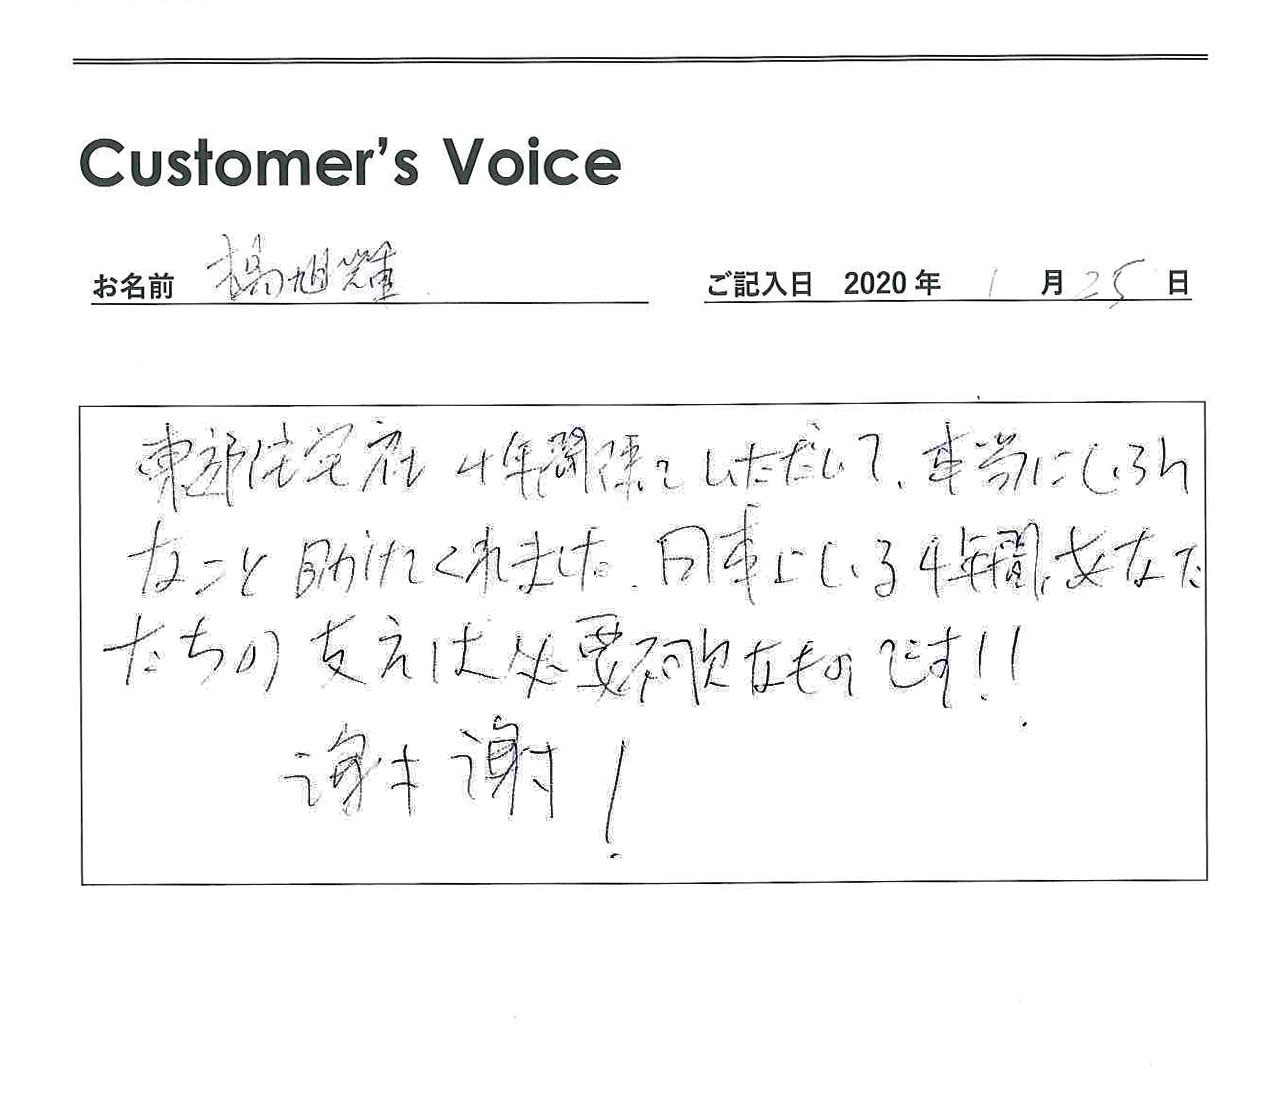 Customer's Voice
お名前 楊旭輝
ご記入日 2020年 1月25日
東部住宅社 4年間係っていただいて、本当にいろん
なこと助けてくれました。日本にいる4年間、あなた
たちの支えは必要不可欠なものです!!
谢谢!